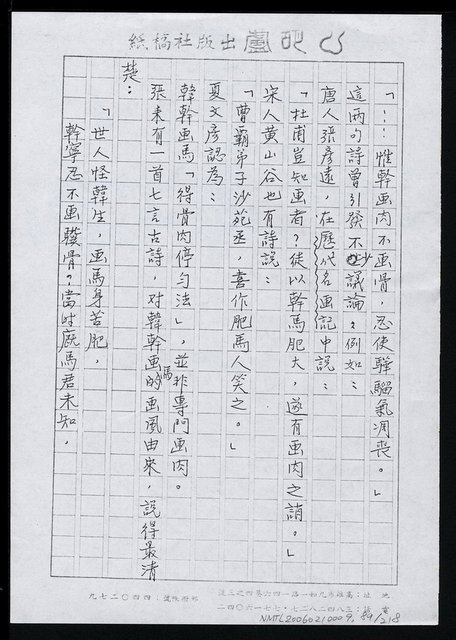 紙稿社版出
「……惟幹画肉不画骨，忍使驊騮氣凋喪。」
這兩句詩曾引發不少議論，例如：
唐人張彥遠，在歷代名画記中說：
「杜甫豈知画者？徒以幹馬肥大，遂有画肉之誚。」
宋人黃山谷也有詩說：
「曹霸弟子沙苑丞，喜作肥馬人笑之。」
夏文彥認為：
韓幹画馬「得骨肉停勻法」，並非專門画肉。
張耒有一首七言古詩，对韓幹画馬的画風由來，說得最清
楚：
「世人怪韓生，画馬身苦肥，
幹寧忍不画驥骨？當时厩馬君未知，
NMTL20060210009, 89/218